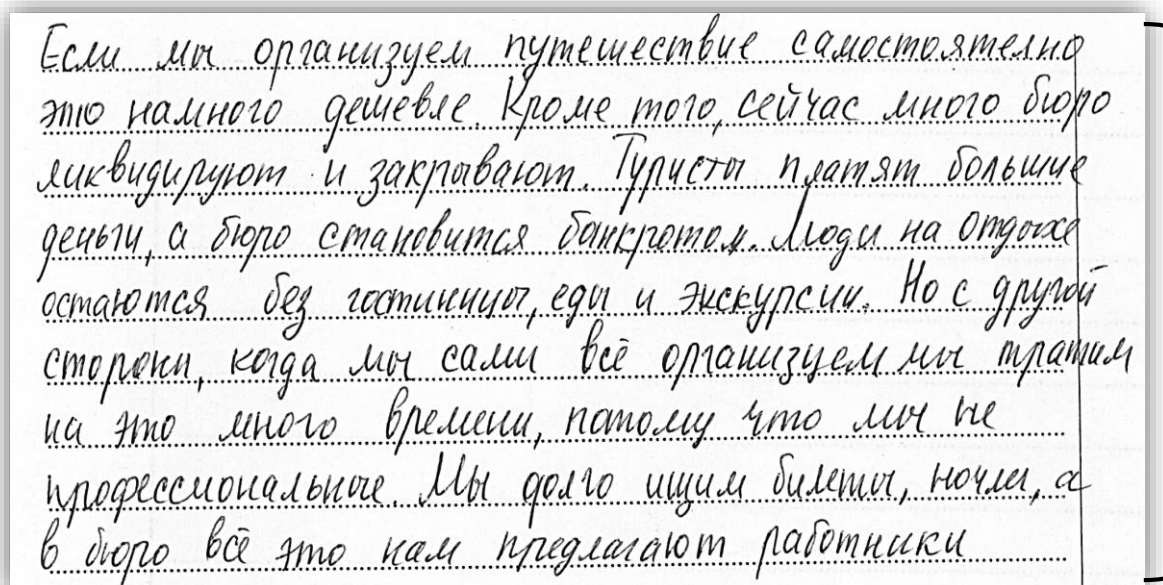 Если мы организуем путешествие самостоятелно
это намного дешевле Кроме того, сейчас много бюро
ликвидируют и закрывают. Туристы платят большие
деньги, а бюро становится банкротом. Люди на отдыхе
остаются без гостиницы, еды и экскурсии. Но с другой
стороны, когда мы сами всё организуем мы тратим
на это много времени, потому что мы не
профессиональные. Мы долго ищим билеты, ночлег, а
в бюро всё это нам предлагают работники